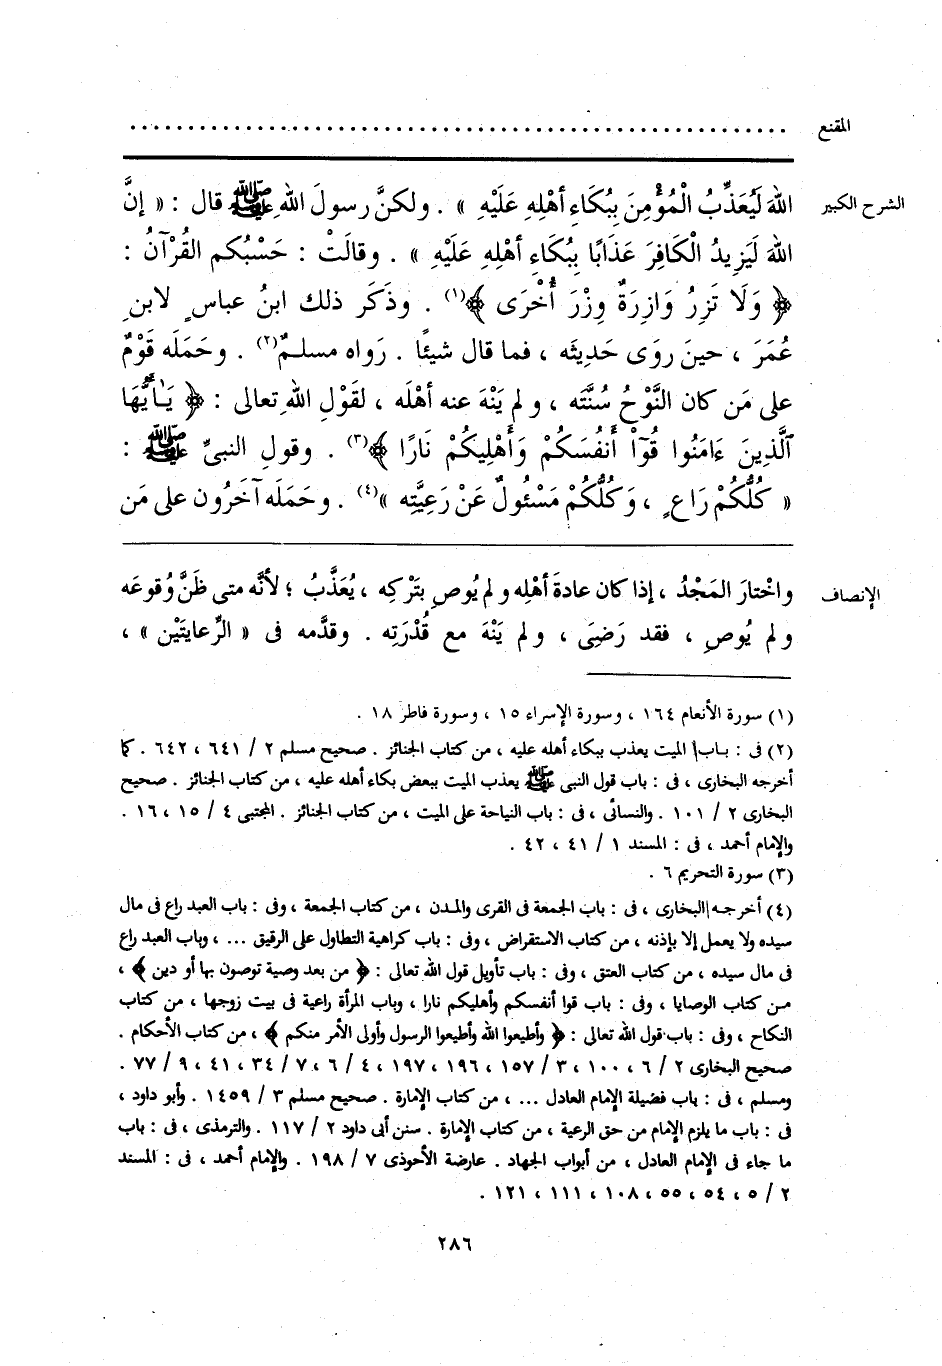 المقنع ..........................................................
الشرح الكبير اللهَ لَيُعَذِّبُ الْمُؤْمِنَ بِبُكَاءِ أهْلِهِ عَلَيْهِ » . ولكنَّ رسولَ اللهِ ﷺ قال : « إنَّ
اللهَ لَيَزِيدُ الْكَافِرَ عَذَابًا بِبُكَاءِ أهْلِهِ عَلَيْهِ » . وقالَتْ : حَسْبُكم القُرْآنُ :
﴿ وَلَا تَزِرُ وَازِرَةٌ وِزْرَ أُخْرَى ﴾(١) . وذَكَر ذلك ابنُ عباسٍ لابنِ
عُمَرَ ، حينَ روَى حَدِيثَه ، فما قال شيئًا . رَواه مسلمٌ(٢) . وحَمَلَه قَوْمٌ
على مَن كان النَّوْحُ سُنَّتَه ، ولم يَنْهَ عنه أهْلَه ، لقَوْلِ اللهِ تعالى : ﴿ يَـٰأَيُّهَا
ٱلَّذِينَ ءَامَنُوا قُوٓاْ أَنفُسَكُمْ وَأَهْلِيكُمْ نَارًا ﴾(٣) . وقولِ النبىِّ ﷺ :
« كُلُّكُمْ رَاعٍ ، وَكُلُّكُمْ مَسْئُولٌ عَنْ رَعِيَّتِه »(٤) . وحَمَلَه آخَرُون على مَن
الإنصاف واخْتارَ المَجْدُ ، إذا كان عادةَ أهْلِه ولم يُوصِ بتَرْكِه ، يُعَذَّبُ ؛ لأنَّه متى ظَنَّ وُقوعَه
ولم يُوصِ ، فقد رَضِىَ ، ولم يَنْهَ مع قُدْرَتِه . وقدَّمه فى « الرِّعايتَيْن » ،
(١) سورة الأنعام ١٦٤ ، وسورة الإسراء ١٥ ، وسورة فاطر ١٨ .
(٢) فى : باب الميت يعذب ببكاء أهله عليه ، من كتاب الجنائز . صحيح مسلم ٢ / ٦٤١ ، ٦٤٢ . كما
أخرجه البخارى ، فى : باب قول النبى ﷺ يعذب الميت ببعض بكاء أهله عليه ، من كتاب الجنائز . صحيح
البخارى ٢ / ١٠١ . والنسائى ، فى : باب النياحة على الميت ، من كتاب الجنائز . المجتبى ٤ / ١٥ ، ١٦ .
والإمام أحمد ، فى : المسند ١ / ٤١ ، ٤٢ .
(٣) سورة التحريم ٦ .
(٤) أخرجه البخارى ، فى : باب الجمعة فى القرى والمدن ، من كتاب الجمعة ، وفى : باب العبد راع فى مال
سيده ولا يعمل إلا بإذنه ، من كتاب الاستقراض ، وفى : باب كراهية التطاول على الرقيق ... ، وباب العبد راع
فى مال سيده ، من كتاب العتق ، وفى : باب تأويل قول الله تعالى : ﴿ من بعد وصية توصون بها أو دين ﴾ ،
من كتاب الوصايا ، وفى : باب قوا أنفسكم وأهليكم نارا ، وباب المرأة راعية فى بيت زوجها ، من كتاب
النكاح ، وفى : باب قول الله تعالى : ﴿ وأطيعوا الله وأطيعوا الرسول وأولى الأمر منكم ﴾ ، من كتاب الأحكام .
صحيح البخارى ٢ / ٦ ، ١٠٠ ، ٣ / ١٥٧ ، ١٩٦ ، ١٩٧ ، ٤ / ٦ ، ٧ / ٣٤ ، ٤١ ، ٩ / ٧٧ .
ومسلم ، فى : باب فضيلة الإمام العادل ... ، من كتاب الإمارة . صحيح مسلم ٣ / ١٤٥٩ . وأبو داود ،
فى : باب ما يلزم الإمام من حق الرعية ، من كتاب الإمارة . سنن أبى داود ٢ / ١١٧ . والترمذى ، فى : باب
ما جاء فى الإمام العادل ، من أبواب الجهاد . عارضة الأحوذى ٧ / ١٩٨ . والإمام أحمد ، فى : المسند
٢ / ٥ ، ٥٤ ، ٥٥ ، ١٠٨ ، ١١١ ، ١٢١ .
٢٨٦